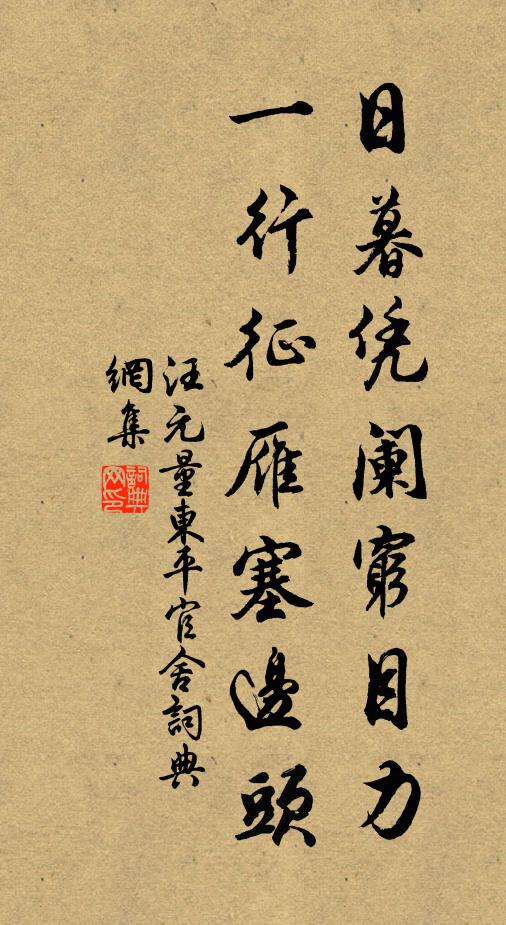 日暮凭阑窮目力
一行征雁塞邊頭
汪元量東平官舍詞典
網集
詞典網印